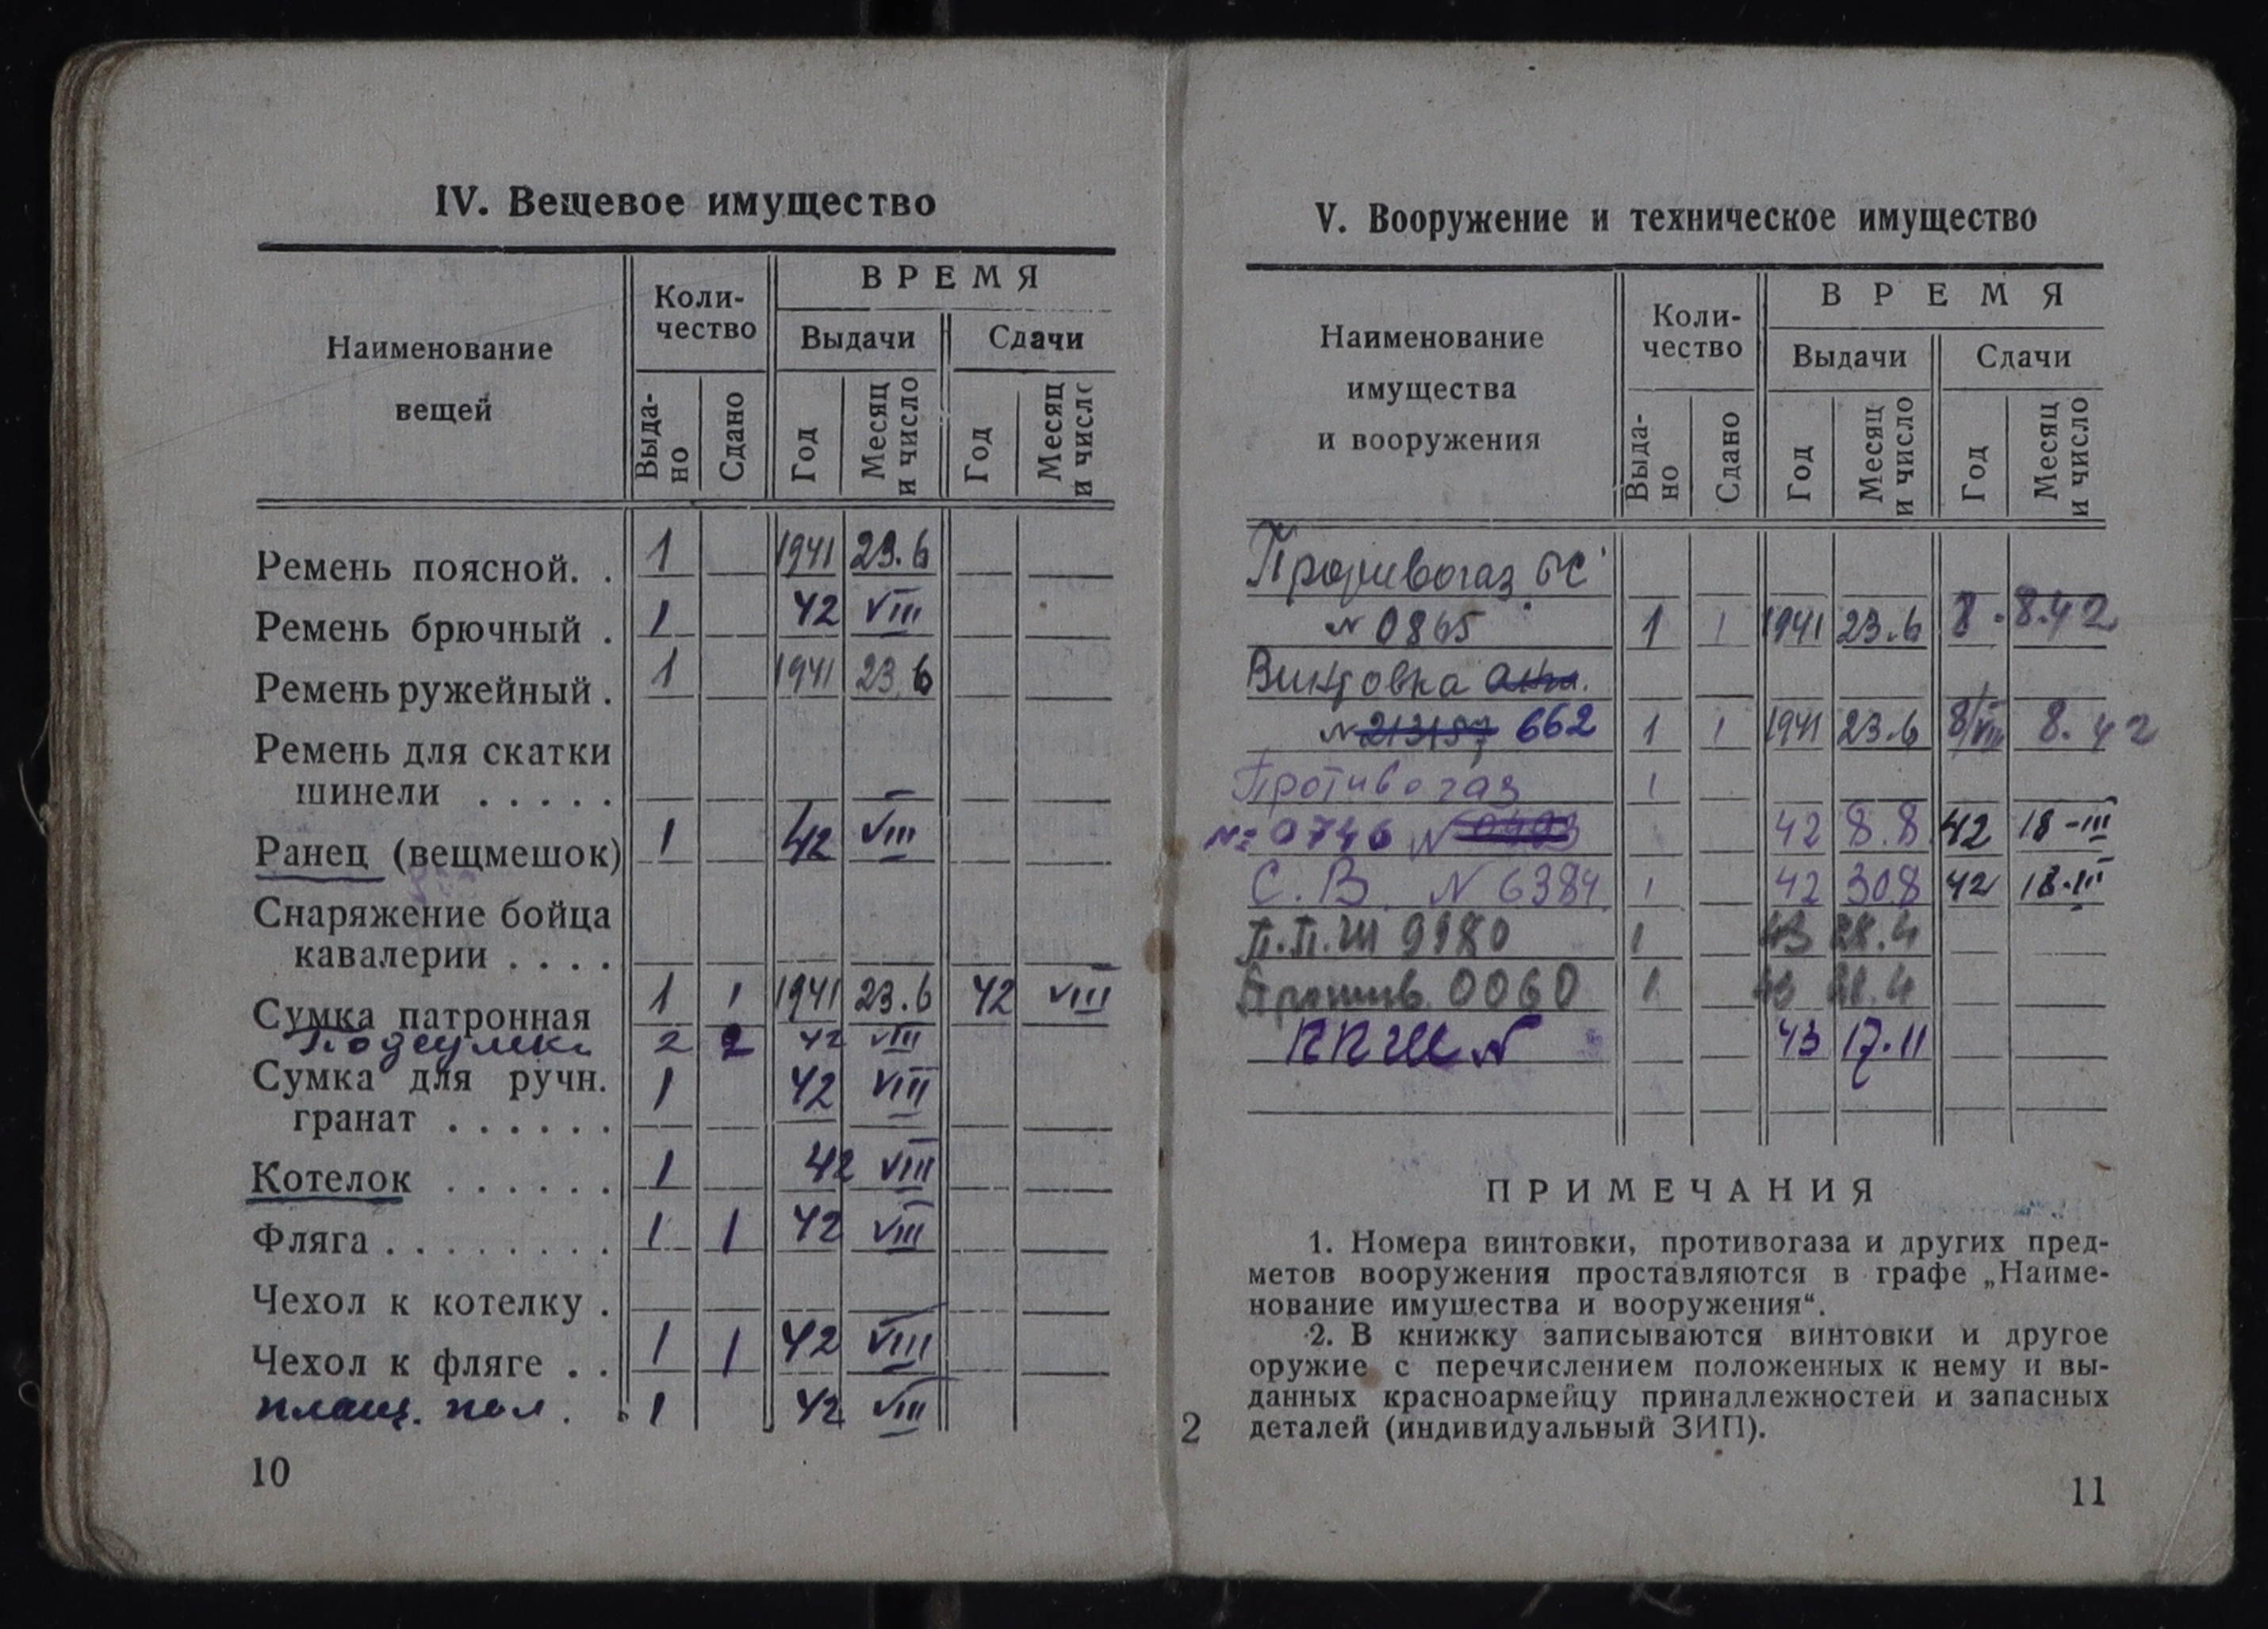 IV. Вещевое имущество
Наименование вещей
Коли-
чество
ВРЕМЯ
Выдачи
Сдачи
Выда-
но
Сдано
Год
Месяц
и число
Год
Месяц
и число
Ремень поясной. . 1 1941 23.6
Ремень брючный . 1 42 VIII
Ремень ружейный . 1 1941 23.6
Ремень для скатки
шинели . . . . .
Ранец (вещмешок) 1 42 VIII
Снаряжение бойца
кавалерии . . . .
Сумка патронная 1 1 1941 23.6 42 VIII
Подсумки 2 2 42 VIII
Сумка для ручн. 1 42 VIII
гранат . . . . . .
Котелок . . . . . . 1 42 VIII
Фляга . . . . . . . . 1 1 42 VIII
Чехол к котелку .
Чехол к фляге . . 1 1 42 VIII
плащ. пал. 1 42 VIII
10
V. Вооружение и техническое имущество
Наименование
имущества
и вооружения
Коли-
чество
ВРЕМЯ
Выдачи
Сдачи
Выда-
но
Сдано
Год
Месяц
и число
Год
Месяц
и число
Противогаз БС
N 0865 1 1 1941 23.6 8. 8.42
Винтовка
N 213197 662 1 1 1941 23.6 8/VIII 8.42
Противогаз 1
№ 0746 N 42 8.8 42 18-III
С.В. N 6384 1 42 30.8 42 18.III
П.П.Ш 9980 1 43 28.4
Против. 0060 1 43 28.4
ППШ N 43 17.11
ПРИМЕЧАНИЯ
1. Номера винтовки, противогаза и других пред-
метов вооружения проставляются в графе „Наиме-
нование имущества и вооружения“.
2. В книжку записываются винтовки и другое
оружие с перечислением положенных к нему и вы-
данных красноармейцу принадлежностей и запасных
деталей (индивидуальный ЗИП).
2
11